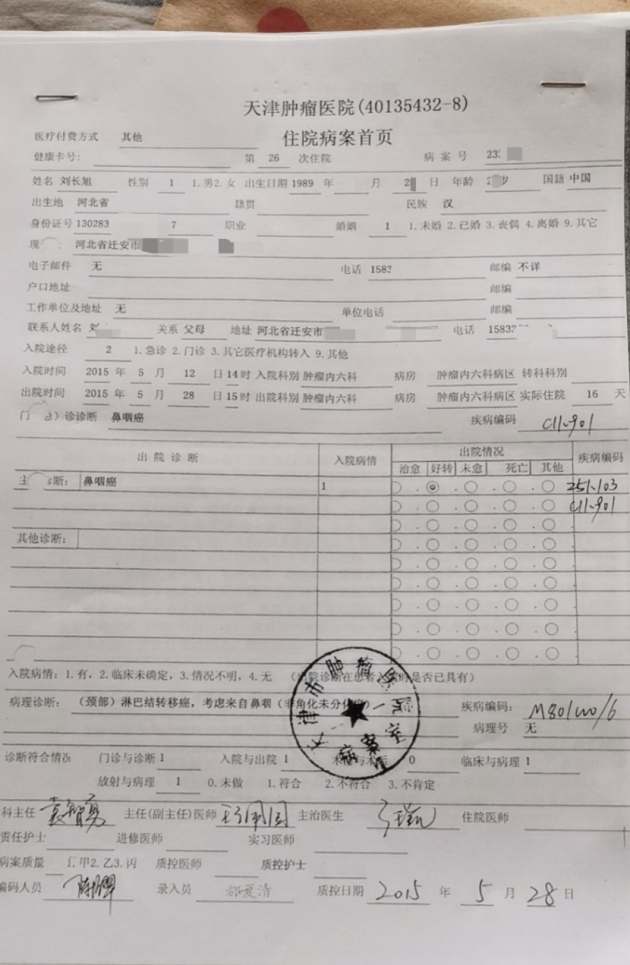 天津肿瘤医院(40135432-8)
住院病案首页
医疗付费方式 其他
健康卡号: 第 26 次住院 病案号 232
姓名 刘长旭 性别 1 1.男2.女 出生日期 1989 年 月 2 日 年龄 岁 国籍 中国
出生地 河北省 籍贯 民族 汉
身份证号 130283 7 职业 婚姻 1 1.未婚 2.已婚 3.丧偶 4.离婚 9.其它
现 河北省迁安市
电子邮件 无 电话 1587 邮编 不详
户口地址 邮编
工作单位及地址 无 单位电话 邮编
联系人姓名 关系 父母 地址 河北省迁安市 电话 15837
入院途径 2 1.急诊 2.门诊 3.其它医疗机构转入 9.其他
入院时间 2015 年 5 月 12 日 14时 入院科别 肿瘤内六科 病房 肿瘤内六科病区 转科科别
出院时间 2015 年 5 月 28 日 15时 出院科别 肿瘤内六科 病房 肿瘤内六科病区 实际住院 16 天
门 诊诊断 鼻咽癌 疾病编码 C11.901
出院诊断 入院病情 出院情况 疾病编码
治愈 好转 未愈 死亡 其他
主 断: 鼻咽癌 1 Z51.103
C11.901
其他诊断:
入院病情: 1.有, 2.临床未确定, 3.情况不明, 4.无 是否已具有)
天津市肿瘤医院
病案室
病理诊断: (颈部)淋巴结转移癌, 考虑来自鼻咽 疾病编码: M80100/6
病理号 无
诊断符合情况 门诊与诊断 1 入院与出院 1 0 临床与病理 1
放射与病理 1 0.未做 1.符合 2.不符合 3.不肯定
科主任 主任(副主任)医师 主治医生 住院医师
责任护士 进修医师 实习医师
病案质量 1.甲2.乙3.丙 质控医师 质控护士
编码人员 录入员 郝爱清 质控日期 2015 年 5 月 28 日